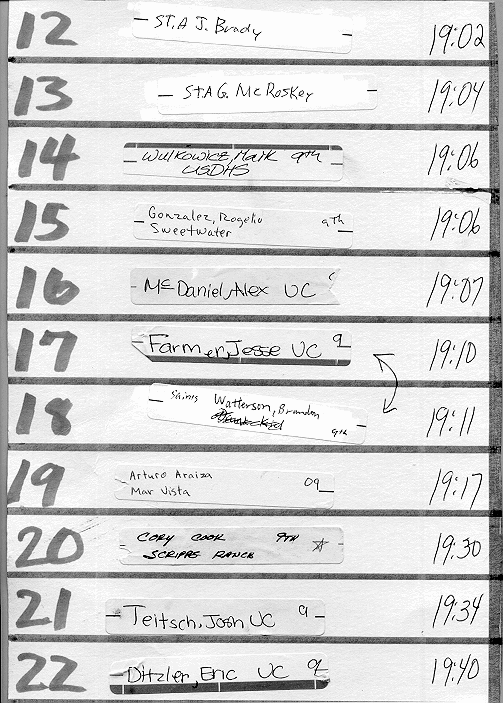 12 St.A J. Brady 19:02
13 St.A G. McRoskey 19:04
14 Wulkowicz, Mark 9th 19:06
USDHS
15 Gonzalez, Rogelio 9th 19:06
Sweetwater
16 McDaniel, Alex UC 19:07
17 Farmer, Jesse UC 9 19:10
18 Saints Watterson, Brandon 19:11
9th
19 Arturo Araiza 09 19:17
Mar Vista
20 Cory Cook 9th 19:30
Scripps Ranch
21 Teitsch, Josh UC 9 19:34
22 Ditzler, Eric UC 9 19:40